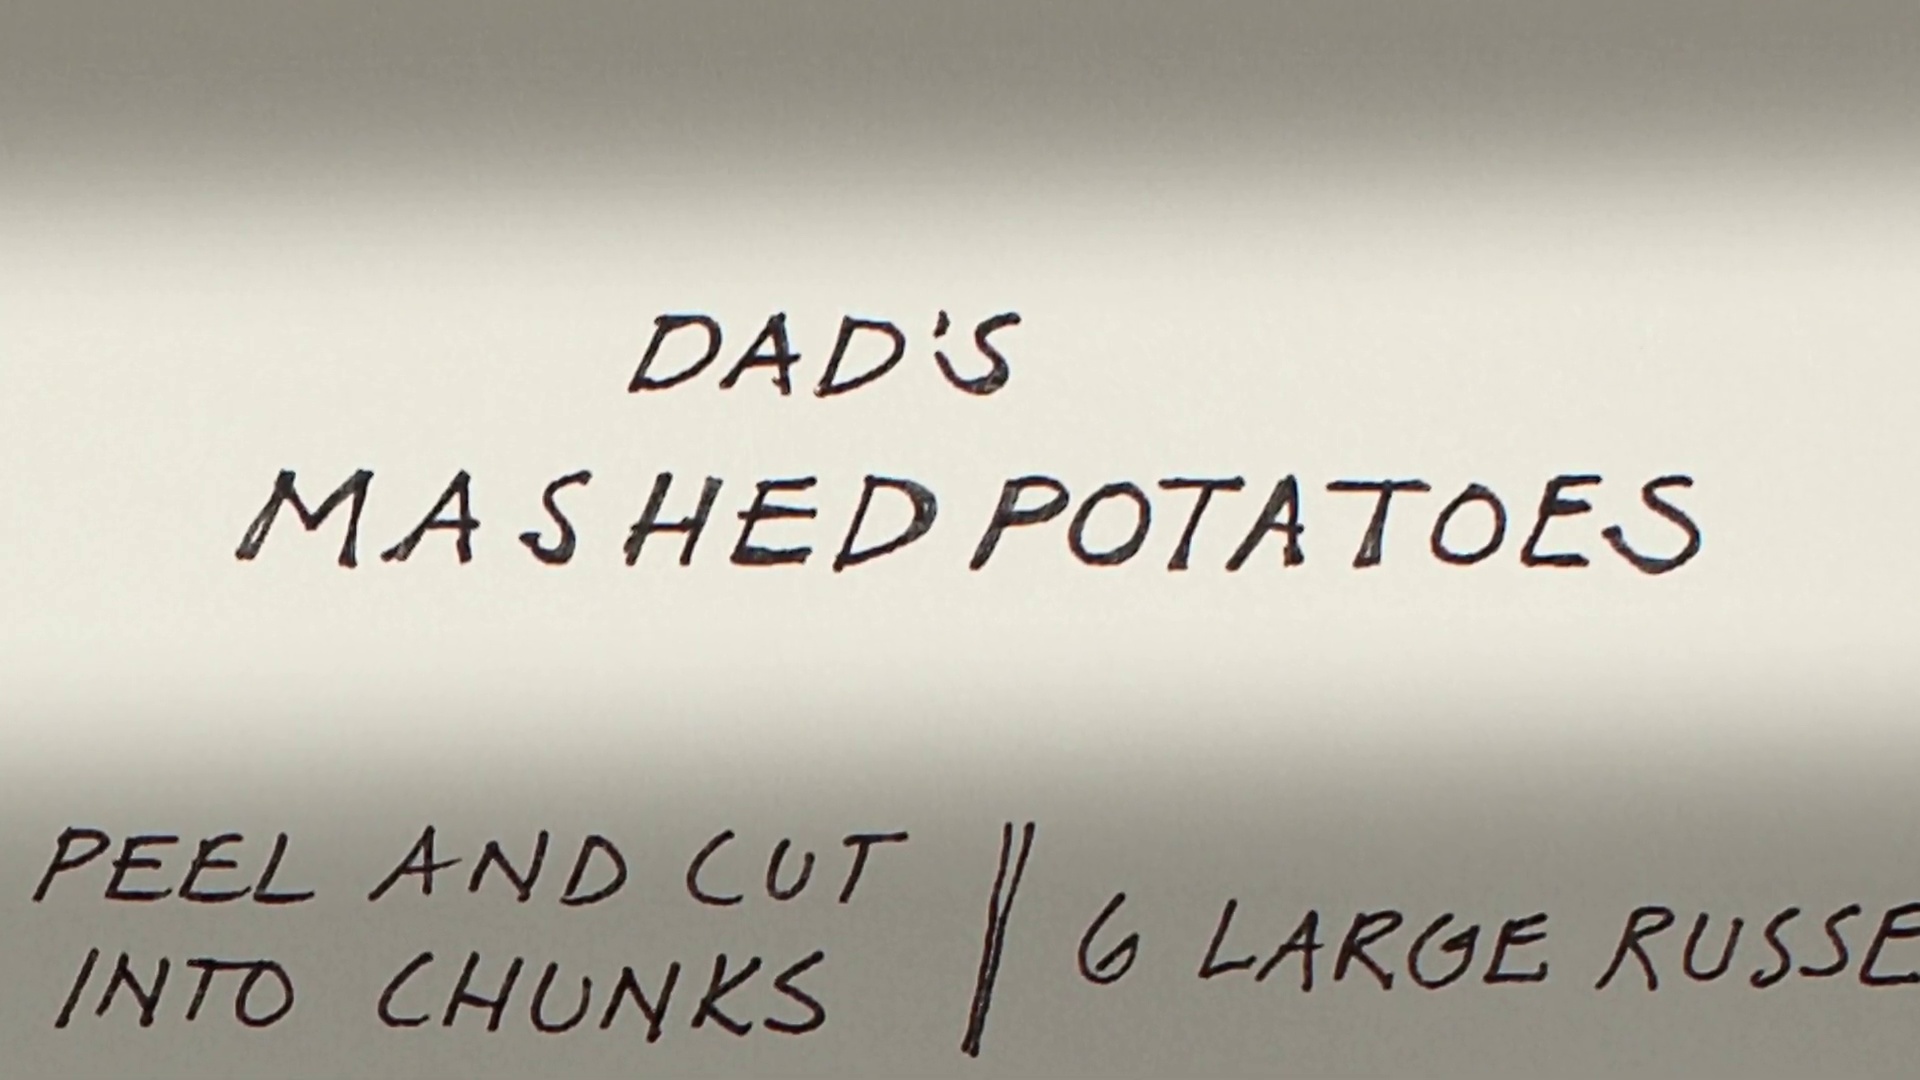 DAD'S
MASHED POTATOES
PEEL AND CUT
INTO CHUNKS
6 LARGE